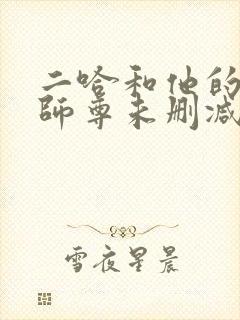 二哈和他的
師尊未删减
雪夜星晨